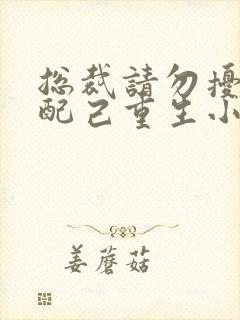 总裁請勿擾
配己重生小
姜蘑菇